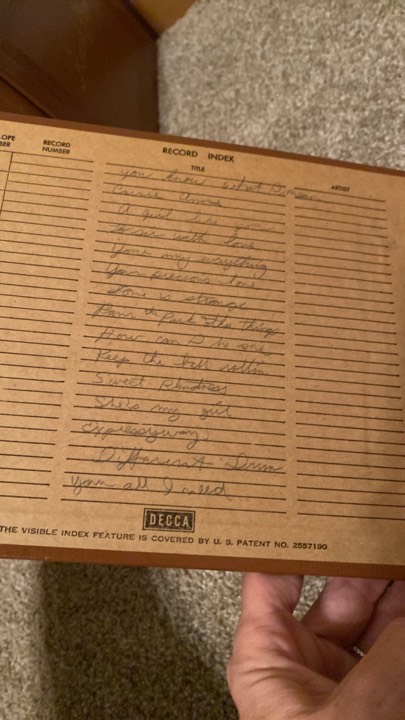 OPE RECORD RECORD INDEX
BER NUMBER TITLE ARTIST
you know what I mean
Carrie Anne
A girl like you
To sir with love
You're my everything
Your precious love
Love is strange
Rain the Park & other things
How can I be sure
Keep the ball rollin
Sweet Blindness
She's my girl
expressway
Different Drum
your all I need
DECCA
THE VISIBLE INDEX FEATURE IS COVERED BY U. S. PATENT NO. 2557190